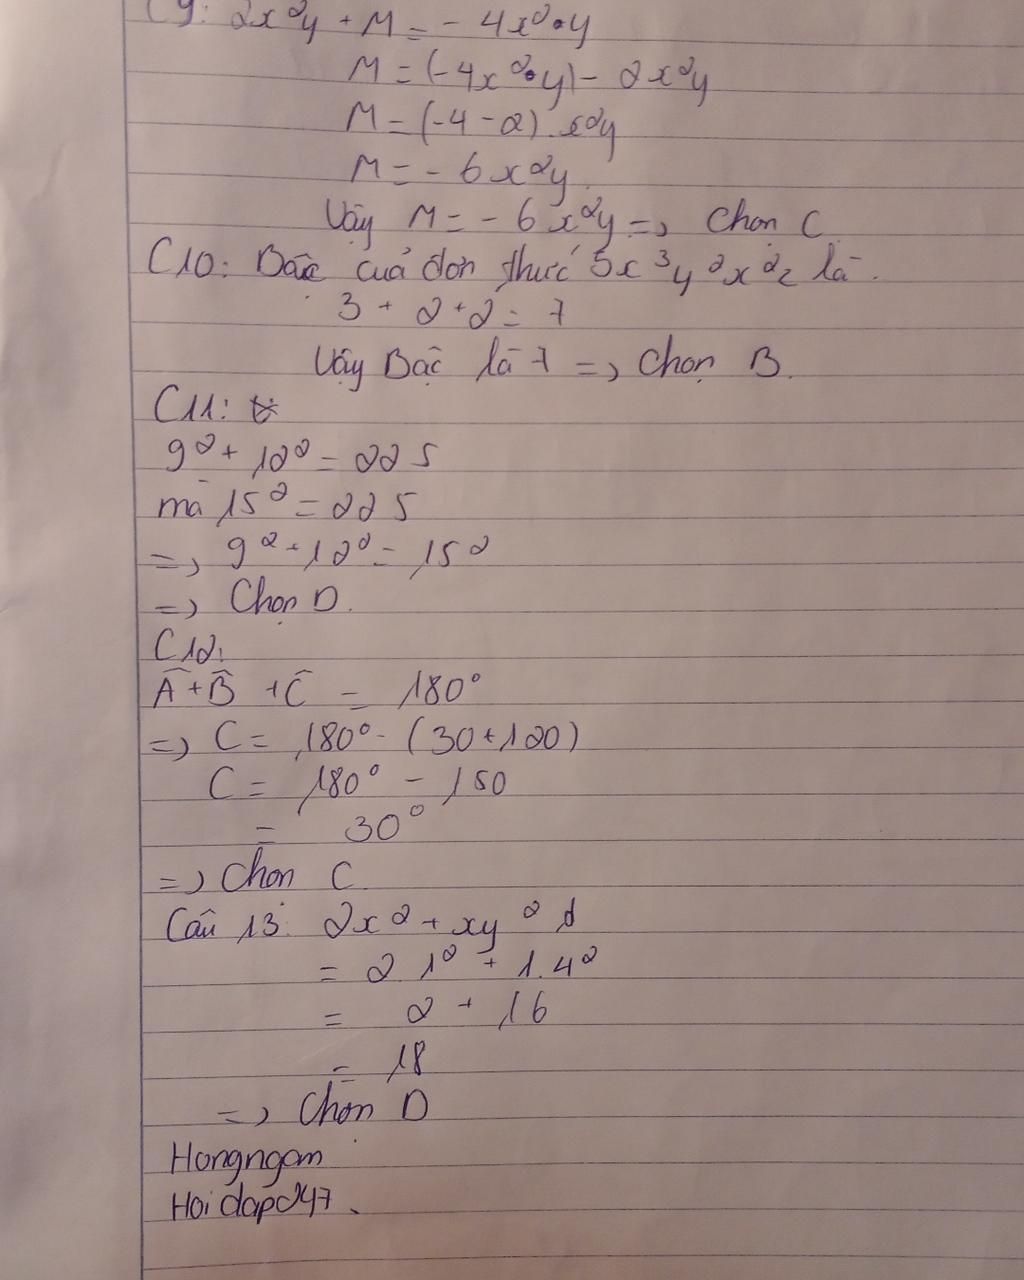 C9: 2x²y + M = - 4x²•y
M = (-4x²•y) - 2x²y
M = (-4 - 2) x²y
M = - 6x²y.
Vậy M = - 6x²y => Chọn C.
C10: Bậc của đơn thức 5x³y²x²z là.
3 + 2 + 2 = 7
Vậy Bậc là 7 => Chọn B.
C11:
9² + 12² = 225
mà 15² = 225
=> 9² + 12² = 15²
=> Chọn D.
C12:
Â + B̂ + Ĉ = 180°
=> C = 180° - (30 + 120)
C = 180° - 150
= 30°
=> Chọn C
Câu 13: 2x² + xy²
= 2 1² + 1.4²
= 2 + 16
= 18
=> Chọn D
Hongngam
Hoidap247.